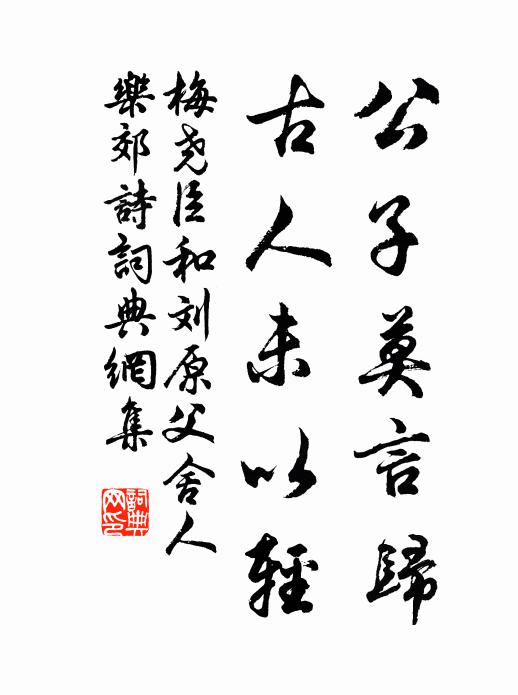 公子莫言歸
古人未以輕
梅尧臣和刘原父舍人
樂郊詩詞典網集
詞典
网印